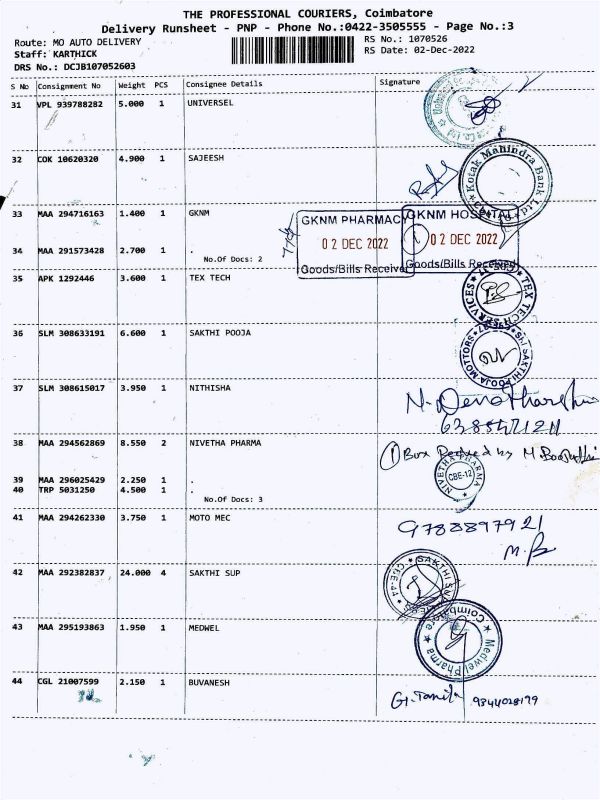 THE PROFESSIONAL COURIERS, Coimbatore
Delivery Runsheet - PNP - Phone No.:0422-3505555 - Page No.:3
Route: MO AUTO DELIVERY
RS No.: 1070526
Staff: KARTHICK
RS Date: 02-Dec-2022
DRS No.: DCJB107052603
S No Consignment No Weight PCS Consignee Details Signature
31 VPL 939788282 5.000 1 UNIVERSEL
32 COK 10620320 4.900 1 SAJEESH
Kotak Mahindra Bank Ltd
33 MAA 294716163 1.400 1 GKNM
GKNM PHARMACY
02 DEC 2022
Goods/Bills Received
GKNM HOSPITAL
02 DEC 2022
Goods/Bills Received
34 MAA 291573428 2.700 1 .
No.Of Docs: 2
35 APK 1292446 3.600 1 TEX TECH
TEX TECH SERVICES
36 SLM 308633191 6.600 1 SAKTHI POOJA
SRI SAKTHI POOJA MOTTORS
37 SLM 308615017 3.950 1 NITHISHA
38 MAA 294562869 8.550 2 NIVETHA PHARMA
1 Box
by M.
NIVETHA PHARMA
CBE-12
39 MAA 296025429 2.250 1 .
40 TRP 5031250 4.500 1 .
No.Of Docs: 3
41 MAA 294262330 3.750 1 MOTO MEC
9788897921
42 MAA 292382837 24.000 4 SAKTHI SUP
SAKTHI
CBE-44
43 MAA 295193863 1.950 1 MEDWEL
Medwel Pharma
Coimbatore
44 CGL 21007599 2.150 1 BUVANESH
9344028179